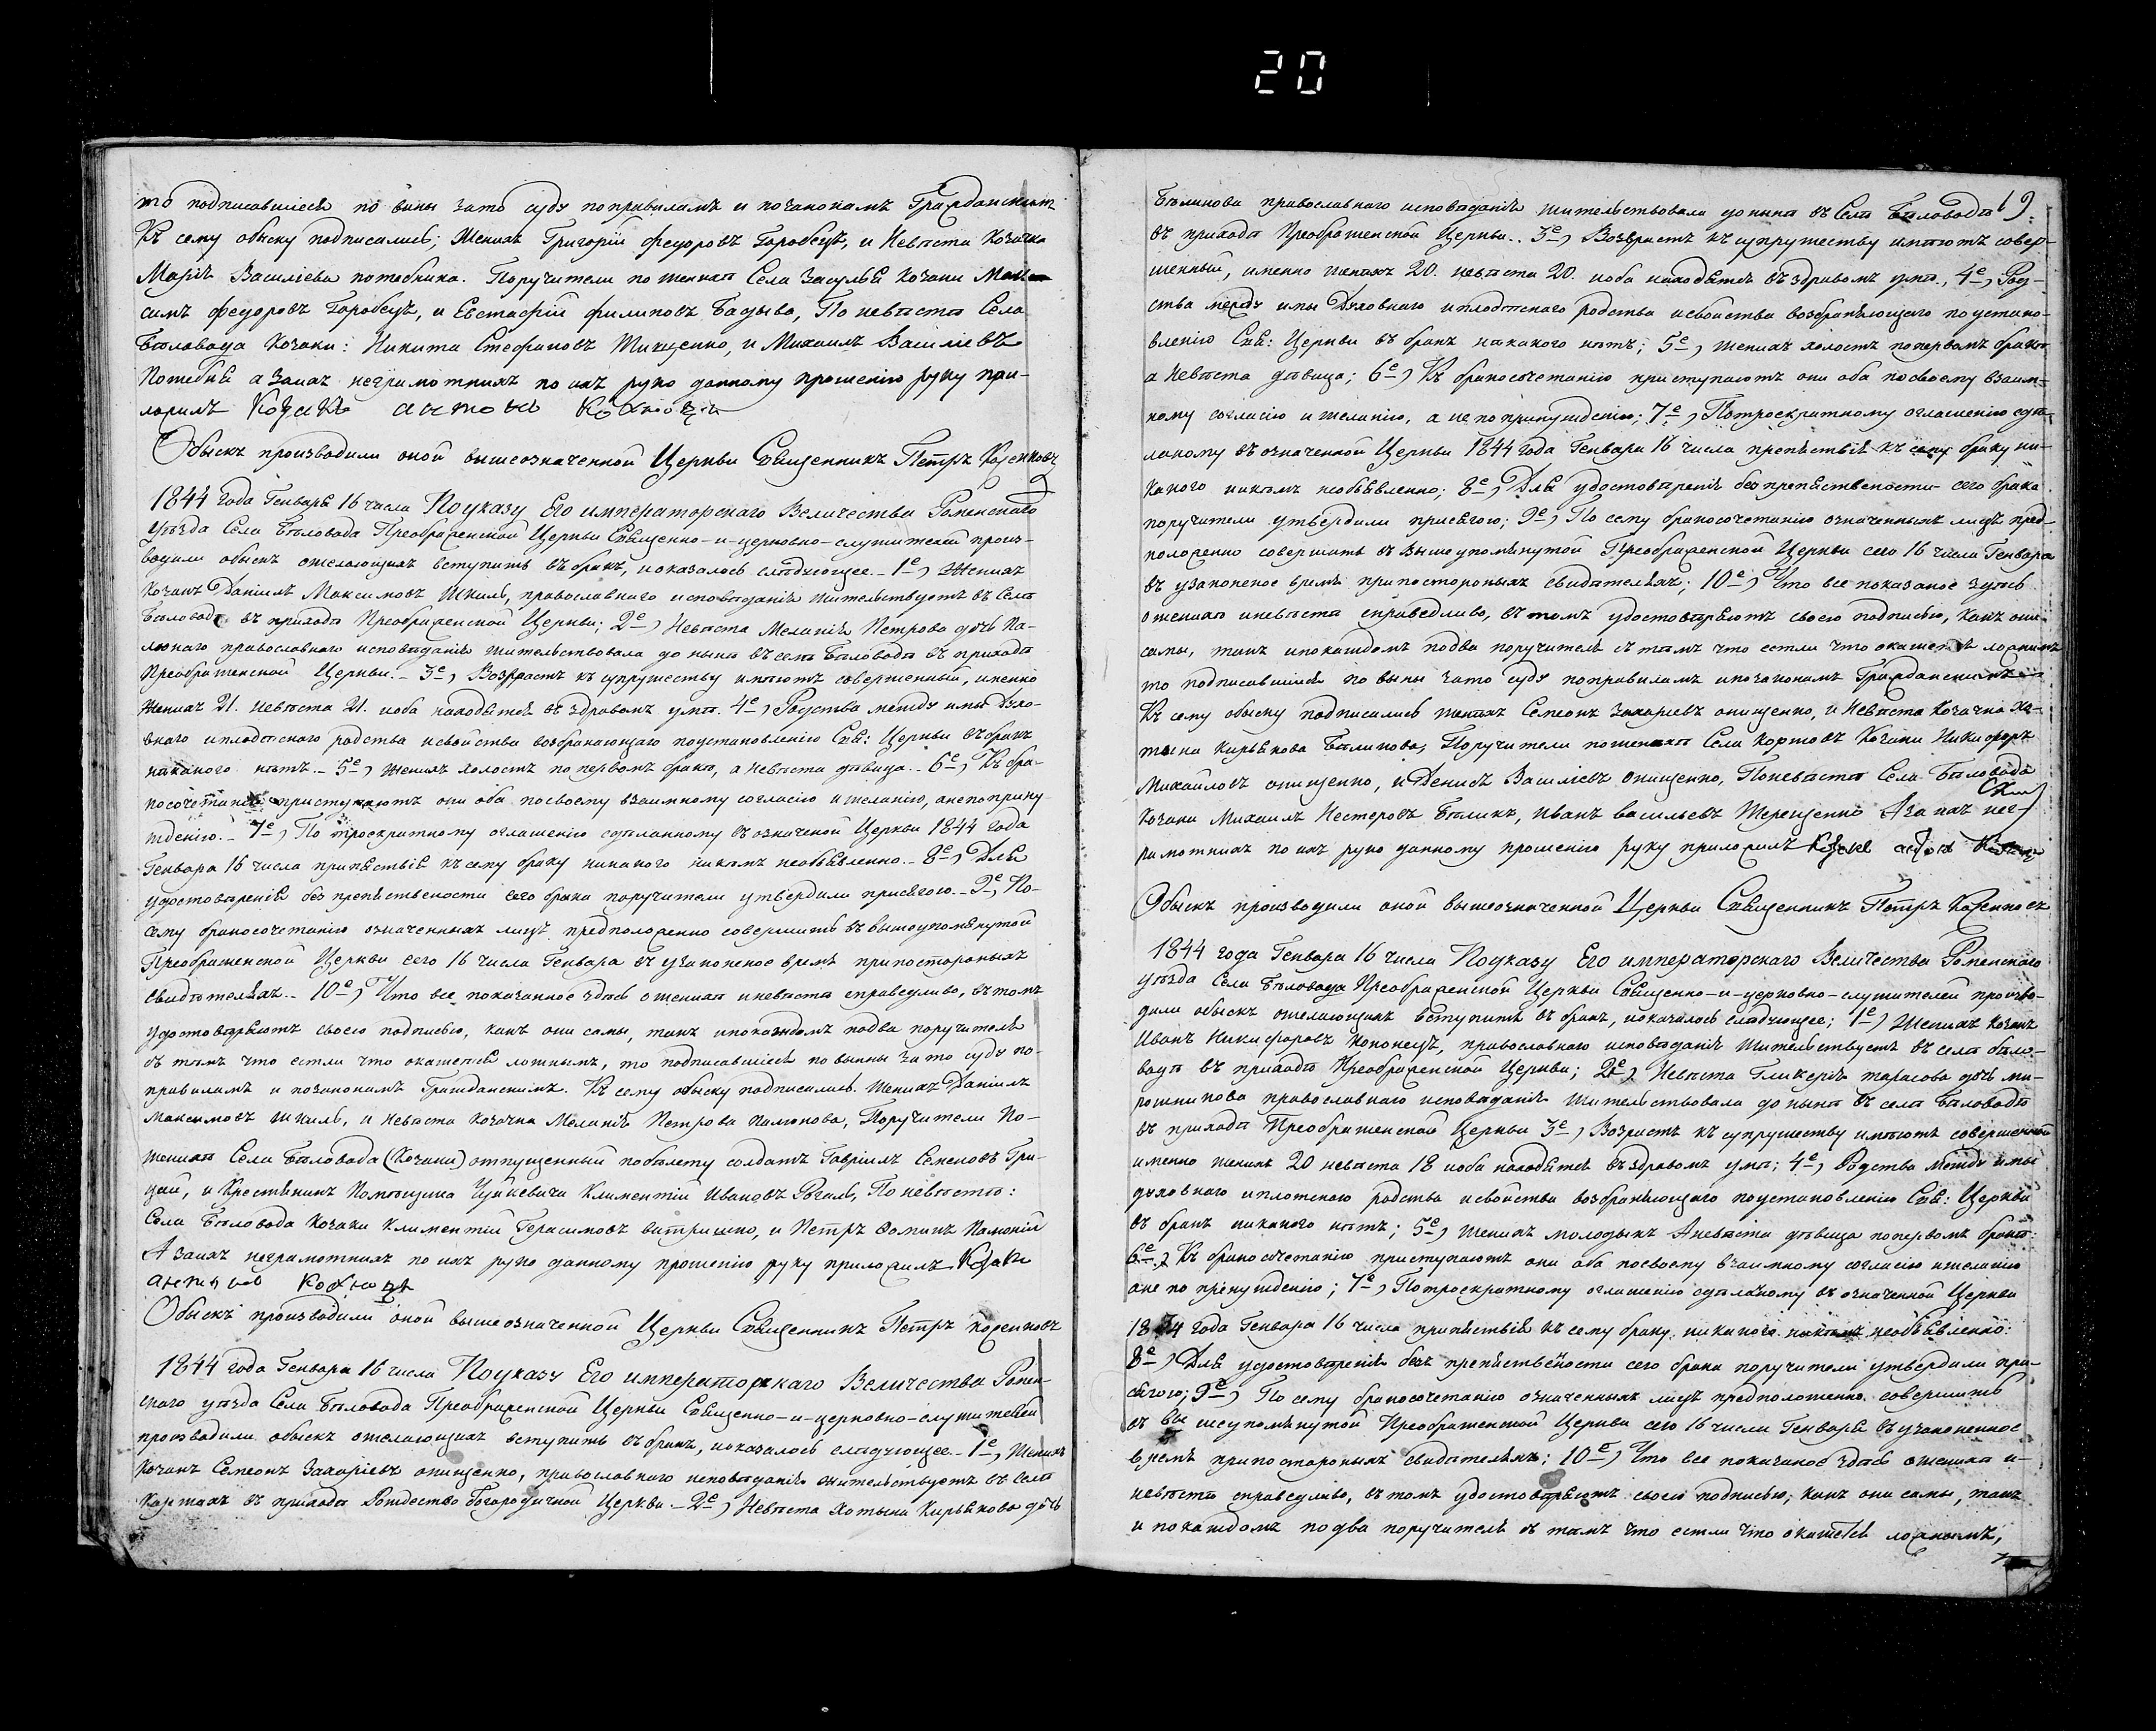 20
то подписавшіеся по вины зато суду поправиламъ и позаконамъ Гражданскимъ
Къ сему обыску подписались; Женихъ Григорій Федоровъ Горобецъ, и Невѣста Козачка
Марія Василіева потебнина. Поручители по женихѣ Села Засулья Козаки Мак-
симъ Федоровъ Горобецъ, и Евстафій филиповъ Бадыво, По невѣстѣ Села
Бѣловода Козаки: Никита Стефановъ Тищенко, и Михаилъ Василіевъ
Потебня а заихъ неграмотныхъ по ихъ руко данному прошенію руку при-
ложилъ Козакъ
Обыскъ производили оной вышеозначенной Церкви Священникъ Петръ
1844 года Генваря 16 числа Поуказу Его императорскаго Величества Роменскаго
уѣзда Села Бѣловода Преображенской Церкви Священно-и-церковно-служители произ-
водили обыскъ ожелающихъ вступить въ бракъ, иоказалось слѣдующее. 1е, Женихъ
Козакъ Даніилъ Максимовъ Шкиль, православнаго исповѣданія жительствуетъ въ Селѣ
Бѣловодѣ въ приходѣ Преображенской Церкви; 2е, Невѣста Меланія Петрова дочь Па-
люнаго православнаго исповѣданія жительствовала до нынѣ въ селѣ Бѣловодѣ въ приходѣ
Преображенской Церкви. 3е, Возрастъ къ супружеству имѣютъ совершенный, именно
Женихъ 21. невѣста 21. иоба находятся въ здравомъ умѣ. 4е, Родства между ими Духо-
внаго иплотскаго родства исвойства возбраняющаго поустановленію Свя: Церкви въ бракъ
никакого нѣтъ. 5е, женихъ холостъ по первомъ бракѣ, а невѣста дѣвица. 6е, Къ бра-
посочетанію приступаютъ они оба посвоему взаимному согласію и желанію, анепоприну-
жденію. 7е, По троекратному оглашенію сдѣланному въ означеной Церкви 1844 года
Генваря 16 числа препятствія къ сему браку никакого никѣмъ необъявленно. 8е, Для
удостовѣренія без препятствености сего брака поручители утвердили присягою. 9е, По-
сему бракосочетанію означенныхъ лицъ предположенно совершить въ вышеупомянутой
Преображенской Церкви сего 16 числа Генваря въ узаконеное время припостороныхъ
Свидѣтеляхъ. 10е, Что все показанное здѣсь оженихѣ иневѣстѣ справедливо, въ томъ
удостовѣряютъ своею подписью, какъ они сами, такъ ипокаждомъ подва поручителя
съ тѣмъ что естли что окажется ложнымъ, то подписавшіеся по винны зато суду по-
правиламъ и позаконамъ Гражданскимъ. Къ сему обыску подписались. Женихъ Даніилъ
Максимовъ шкиль, и невѣста козачка Меланія Петрова Палюнова, Поручители По-
женихѣ Села Бѣловода (Козаки) отпущенный побилету солдатъ Гавріилъ Семеновъ Гри-
цай, и Крестянинъ Помѣщика Климентій Ивановъ Рогаль, По невѣстѣ:
Села Бѣловода Козаки Климентій Герасимовъ, и Петръ Фоминъ Палюній
А заихъ неграмотныхъ по ихъ руко данному прошенію руку приложилъ Козакъ
Обыскъ производили оной вышеозначенной Церкви Священникъ Петръ
1844 года Генваря 16 числа Поуказу Его императорскаго Величества Ромен-
скаго уѣзда Села Бѣловода Преображенской Церкви Священно-и-церковно-служителей
производили обыскъ ожелающихъ вступить въ бракъ, иоказалось слѣдующее. 1е, Женихъ
Козакъ Семеонъ Захаріевъ онищенко, православнаго исповѣданія жительствуетъ въ селѣ
Коржахъ въ приходѣ Рождество Богородичной Церкви. 2е, Невѣста Хотына Кирьякова дочь
19.
Бѣликова православнаго исповѣданія жительствовала до нынѣ въ Селѣ Бѣловодѣ
въ приходѣ Преображенской Церкви. 3е, Возврастъ къ супружеству имѣютъ совер-
шенный, именно женихъ 20. невѣста 20. иоба находятся въ здравомъ умѣ., 4е, Род-
ства между ими Духовнаго иплотскаго родства исвойства возбраняющаго поустано-
вленію Свя: Церкви въ бракъ никакого нѣтъ; 5е, женихъ холостъ попервомъ бракѣ,
а Невѣста дѣвица; 6е, Къ бракосочетанію приступаютъ они оба посвоему взаим-
ному согласію и желанію, а не попринужденію; 7е, Потроекратному оглашенію сдѣ-
ланому въ означенной Церкви 1844 года Генваря 16 числа препятствія къ сему браку ни-
какого никѣмъ необъявленно; 8е, Для удостовѣренія без препятствености сего брака
поручители утвердили присягою; 9е, По сему бракосочетанію означенныхъ лицъ пред-
положенно совершить въ Вышеупомянутой Преображенской Церкви сего 16 числа Генваря
въ узаконеное время припостороныхъ свидѣтеляхъ; 10е, Что все показаное здѣсь
оженихѣ иневѣстѣ справедливо, въ томъ удостовѣряютъ своею подписью, какъ они
сами, такъ ипокаждомъ подва поручителя съ тѣмъ что естли что окажется ложнымъ
то подписавшіеся по вины зато суду поправиламъ ипозаконамъ Гражданскимъ
Къ сему обыску подписались женихъ Семеонъ Захаріевъ онищенко, и Невѣста Козачка Хо-
тына Кирьякова Бѣликова, Поручители поженихѣ Села Коржовъ Козаки Никифоръ
Михайловъ онищенко, и Денисъ Василіевъ Онищенко, Поневѣстѣ Села Бѣловода
Козаки Михаилъ Нестеровъ Бѣликъ, Иванъ васильевъ Терещенко А за ихъ нег-
рамотныхъ по ихъ руко данному прошенію руку приложилъ Козакъ
Обыскъ производили оной вышеозначенной Церкви Священникъ Петръ
1844 года Генваря 16 числа Поуказу Его императорскаго Величества Роменскаго
уѣзда Села Бѣловода Преображенской Церкви Священно-и-церковно-служителей произво-
дили обыскъ ожелающихъ вступить въ бракъ, иоказалось слѣдующее; 1е, Женихъ Козакъ
Иванъ Никифоровъ Кононецъ, православнаго исповѣданія жительствуетъ въ селѣ бѣло-
водѣ въ приходѣ Преображенской Церкви; 2е, Невѣста Гликерія тарасова дочь ми-
рошникова православнаго исповѣданія жительствовала до нынѣ въ селѣ Бѣловодѣ
въ приходѣ Преображенской Церкви 3е, Возрастъ къ супружеству имѣютъ совершенный
именно женихъ 20 невѣста 18 иоба находятся въ здравомъ умѣ; 4е, Родства между ими
духовнаго иплотскаго родства исвойства возбраняющаго поустановленію Свя: Церкви
въ бракъ никакого нѣтъ; 5е, Женихъ молодыкъ Аневѣста дѣвица попервомъ бракѣ
6е, Къ бракосочетанію приступаютъ они оба посвоему взаимному согласію ижеланію
ане по принужденію; 7е, Потроекратному оглашенію сдѣланому въ означенной Церкви
1844 года Генваря 16 числа препятствія къ сему браку никакого никѣмъ необъявленно:
8е, Для удостовѣренія безъ препятствености сего брака поручители утвердили при-
сягою; 9е, По сему бракосочетанію означенныхъ лицъ предположенно совершить
въ вышеупомянутой Преображенской Церкви сего 16 числа Генваря въ узаконенное
время припостороныхъ свидѣтеляхъ; 10е, Что все показаное здѣсь оженихѣ и-
невѣстѣ справедливо, въ томъ удостовѣряютъ своею подписью, какъ они сами, такъ
и покаждомъ подва поручителя съ тѣмъ что естли что окажется ложнымъ,